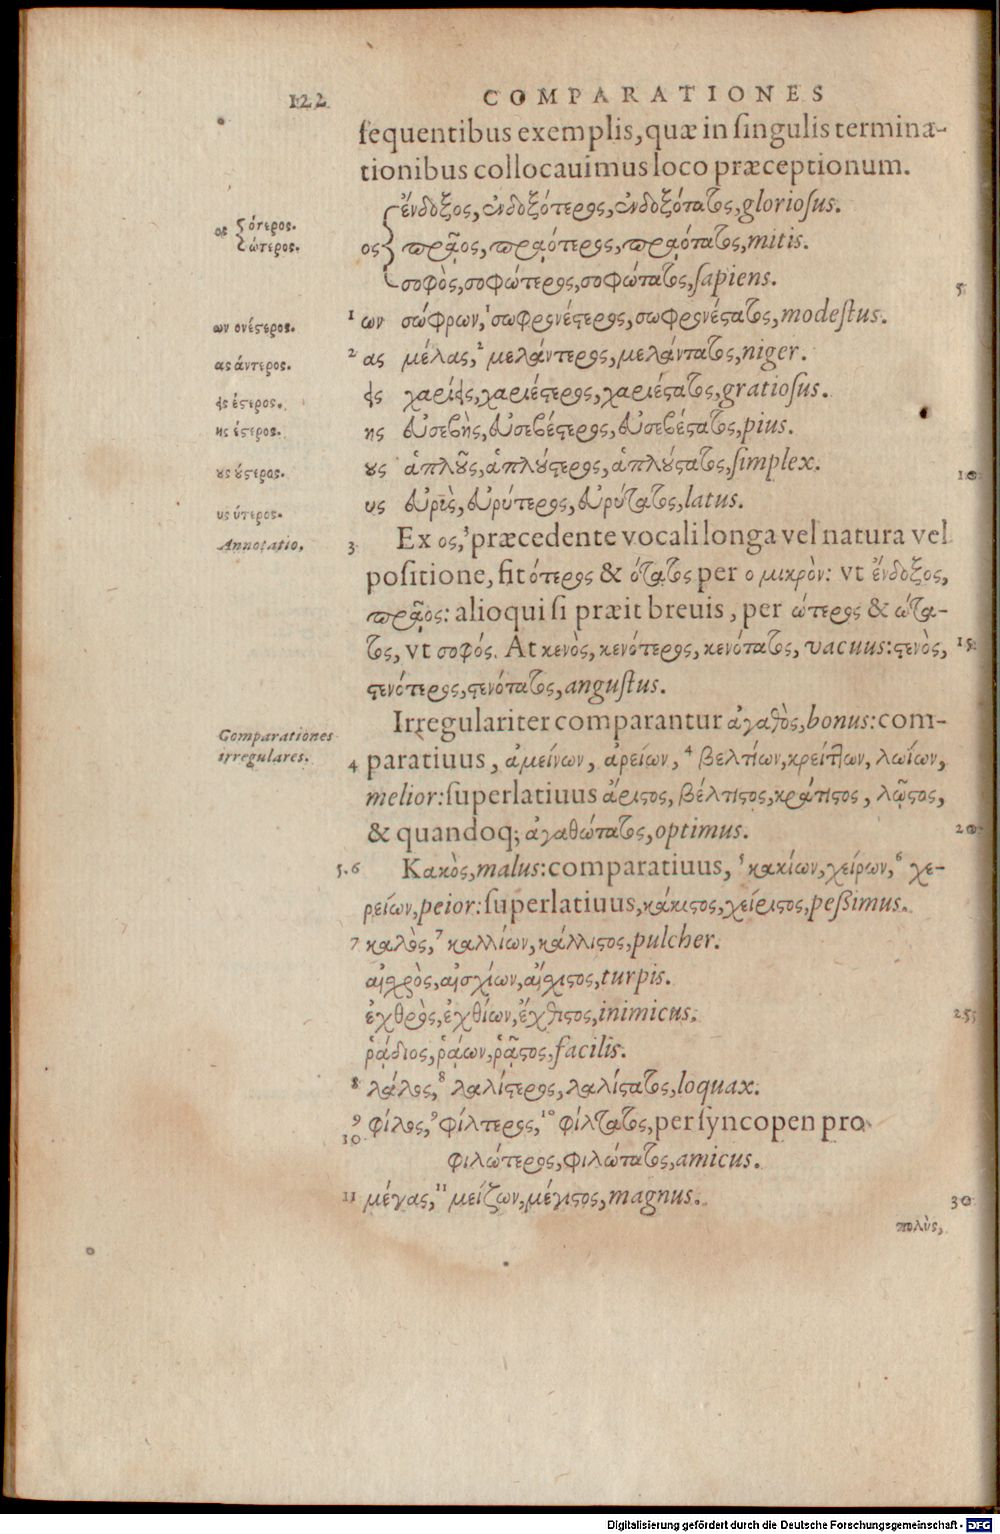 122 COMPARATIONES
sequentibus exemplis, quæ in singulis termina-
tionibus collocauimus loco præceptionum.
ἔνδοξος, ἐνδοξότερος, ἐνδοξότατος, gloriosus.
ος { ότερος. ώτερος.
ος { πρᾷος, πρᾳότερος, πρᾳότατος, mitis.
σοφὸς, σοφώτερος, σοφώτατος, sapiens.
5
ων ονέστερος.
1 ων σώφρων, ¹ σωφρονέστερος, σωφρονέστατος, modestus.
ας άντερος.
2 ας μέλας, ² μελάντερος, μελάντατος, niger.
εις έστερος.
εις χαρίεις, χαριέστερος, χαριέστατος, gratiosus.
ης έστερος.
ης εὐσεβὴς, εὐσεβέστερος, εὐσεβέστατος, pius.
ους ούστερος.
ους ἁπλοῦς, ἁπλούστερος, ἁπλούστατος, simplex. 10
υς ύτερος.
υς εὐρὺς, εὐρύτερος, εὐρύτατος, latus.
Annotatio.
3 Ex ος, ³ præcedente vocali longa vel natura vel
positione, fit ότερος & ότατος per ο μικρὸν: vt ἔνδοξος,
πρᾷος: alioqui si præit breuis, per ώτερος & ώτα-
τος, vt σοφός. At κενὸς, κενότερος, κενότατος, vacuus: στενὸς, 15
στενότερος, στενότατος, angustus.
Comparationes
irregulares.
Irregulariter comparantur ἀγαθὸς, bonus: com-
4 paratiuus, ἀμείνων, ἀρείων, ⁴ βελτίων, κρείττων, λωΐων,
melior: superlatiuus ἄριστος, βέλτιστος, κράτιστος, λῷστος,
& quandoq; ἀγαθώτατος, optimus. 20
5.6 Κακὸς, malus: comparatiuus, ⁵ κακίων, χείρων, ⁶ χε-
ρείων, peior: superlatiuus, κάκιστος, χείριστος, peßimus.
7 καλὸς, ⁷ καλλίων, κάλλιστος, pulcher.
αἰσχρὸς, αἰσχίων, αἴσχιστος, turpis.
ἐχθρὸς, ἐχθίων, ἔχθιστος, inimicus. 25
ῥᾴδιος, ῥᾴων, ῥᾷστος, facilis.
8 λάλος, ⁸ λαλίστερος, λαλίστατος, loquax.
9 φίλος, ⁹ φίλτερος, ¹⁰ φίλτατος, per syncopen pro
10
φιλώτερος, φιλώτατος, amicus.
11 μέγας, ¹¹ μείζων, μέγιστος, magnus. 30
πολὺς,
Digitalisierung gefördert durch die Deutsche Forschungsgemeinschaft - DFG